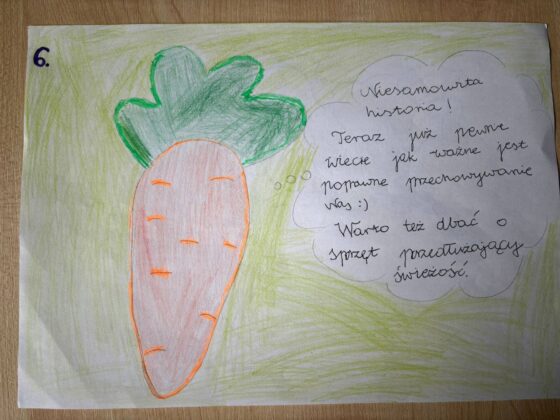 6.
Niesamowita
historia!
Teraz już pewnie
wiecie jak ważne jest
poprawne przechowywanie
Was :)
Warto też dbać o
sprzęt przedłużający
świeżość.